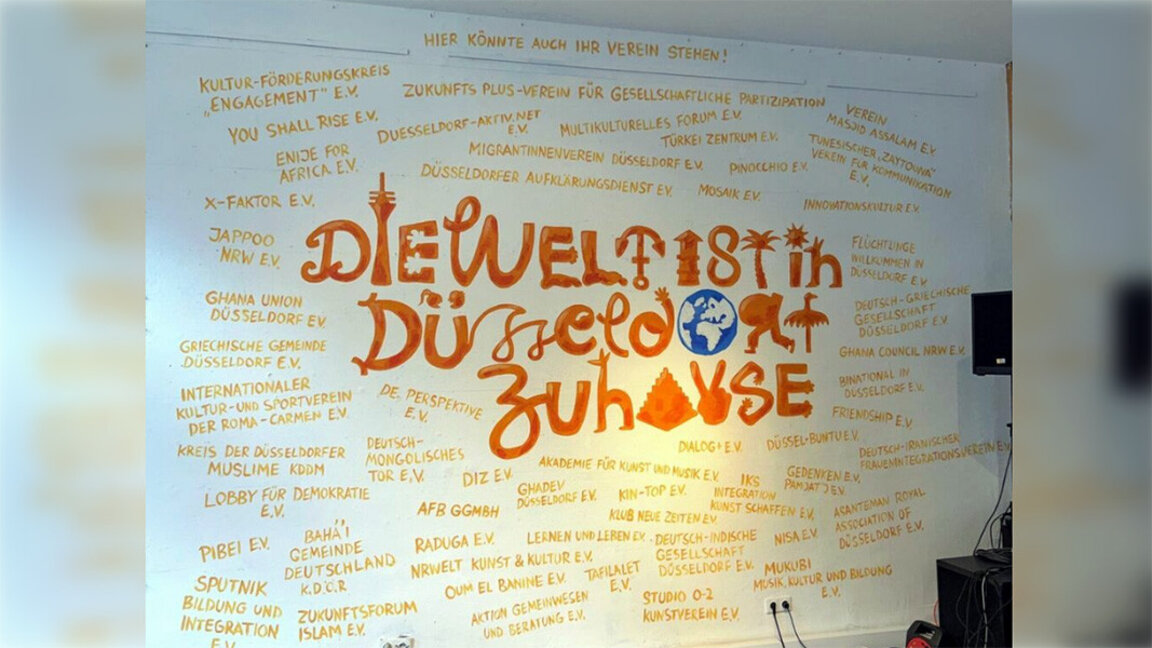 HIER KÖNNTE AUCH IHR VEREIN STEHEN!
KULTUR-FÖRDERUNGSKREIS
„ENGAGEMENT" E.V.
ZUKUNFTS PLUS-VEREIN FÜR GESELLSCHAFTLICHE PARTIZIPATION
VEREIN
MASJID ASSALAM E.V.
YOU SHALL RISE E.V.
DUESSELDORF-AKTIV.NET
E.V.
MULTIKULTURELLES FORUM E.V.
TÜRKEI ZENTRUM E.V.
TUNESISCHER „ZAYTOUNA"
VEREIN FÜR KOMMUNIKATION
E.V.
ENIJE FOR
AFRICA E.V.
MIGRANTINNENVEREIN DÜSSELDORF E.V.
PINOCCHIO E.V.
DÜSSELDORFER AUFKLÄRUNGSDIENST E.V.
MOSAIK E.V.
X-FAKTOR E.V.
INNOVATIONSKULTUR E.V.
JAPPOO
NRW E.V.
DIE WELT IST in
DÜSSELDORF
ZUHAUSE
FLÜCHTLINGE
WILLKOMMEN IN
DÜSSELDORF E.V.
GHANA UNION
DÜSSELDORF E.V.
DEUTSCH-GRIECHISCHE
GESELLSCHAFT
DÜSSELDORF E.V.
GRIECHISCHE GEMEINDE
DÜSSELDORF E.V.
GHANA COUNCIL NRW E.V.
INTERNATIONALER
KULTUR-UND SPORTVEREIN
DER ROMA-CARMEN E.V.
DE. PERSPEKTIVE
E.V.
BINATIONAL IN
DÜSSELDORF E.V.
FRIENDSHIP E.V.
KREIS DER DÜSSELDORFER
MUSLIME KDDM
DEUTSCH-
MONGOLISCHES
TOR E.V.
DIZ E.V.
DIALOG+ E.V.
DÜSSEL-BUNTU E.V.
DEUTSCH-IRANISCHER
FRAUENINTEGRATIONSVEREIN E.V.
AKADEMIE FÜR KUNST UND MUSIK E.V.
LOBBY FÜR DEMOKRATIE
E.V.
AFB GGMBH
GHADEV
DÜSSELDORF E.V.
KIN-TOP E.V.
IKS
INTEGRATION
KUNST SCHAFFEN E.V.
GEDENKEN E.V.
PAMJATJ E.V.
KLUB NEUE ZEITEN E.V.
ASANTEMAN ROYAL
ASSOCIATION OF
DÜSSELDORF E.V.
PIBEI E.V.
BAHÁ'Í
GEMEINDE
DEUTSCHLAND
K.D.Ö.R
RADUGA E.V.
LERNEN UND LEBEN E.V.
DEUTSCH-INDISCHE
GESELLSCHAFT
DÜSSELDORF E.V.
NISA E.V.
NRWELT KUNST & KULTUR E.V.
SPUTNIK
BILDUNG UND
INTEGRATION
E.V.
OUM EL BANINE E.V.
TAFILALET
E.V.
MUKUBI
MUSIK, KULTUR UND BILDUNG
E.V.
ZUKUNFTSFORUM
ISLAM E.V.
AKTION GEMEINWESEN
UND BERATUNG E.V.
STUDIO 0-2
KUNSTVEREIN E.V.